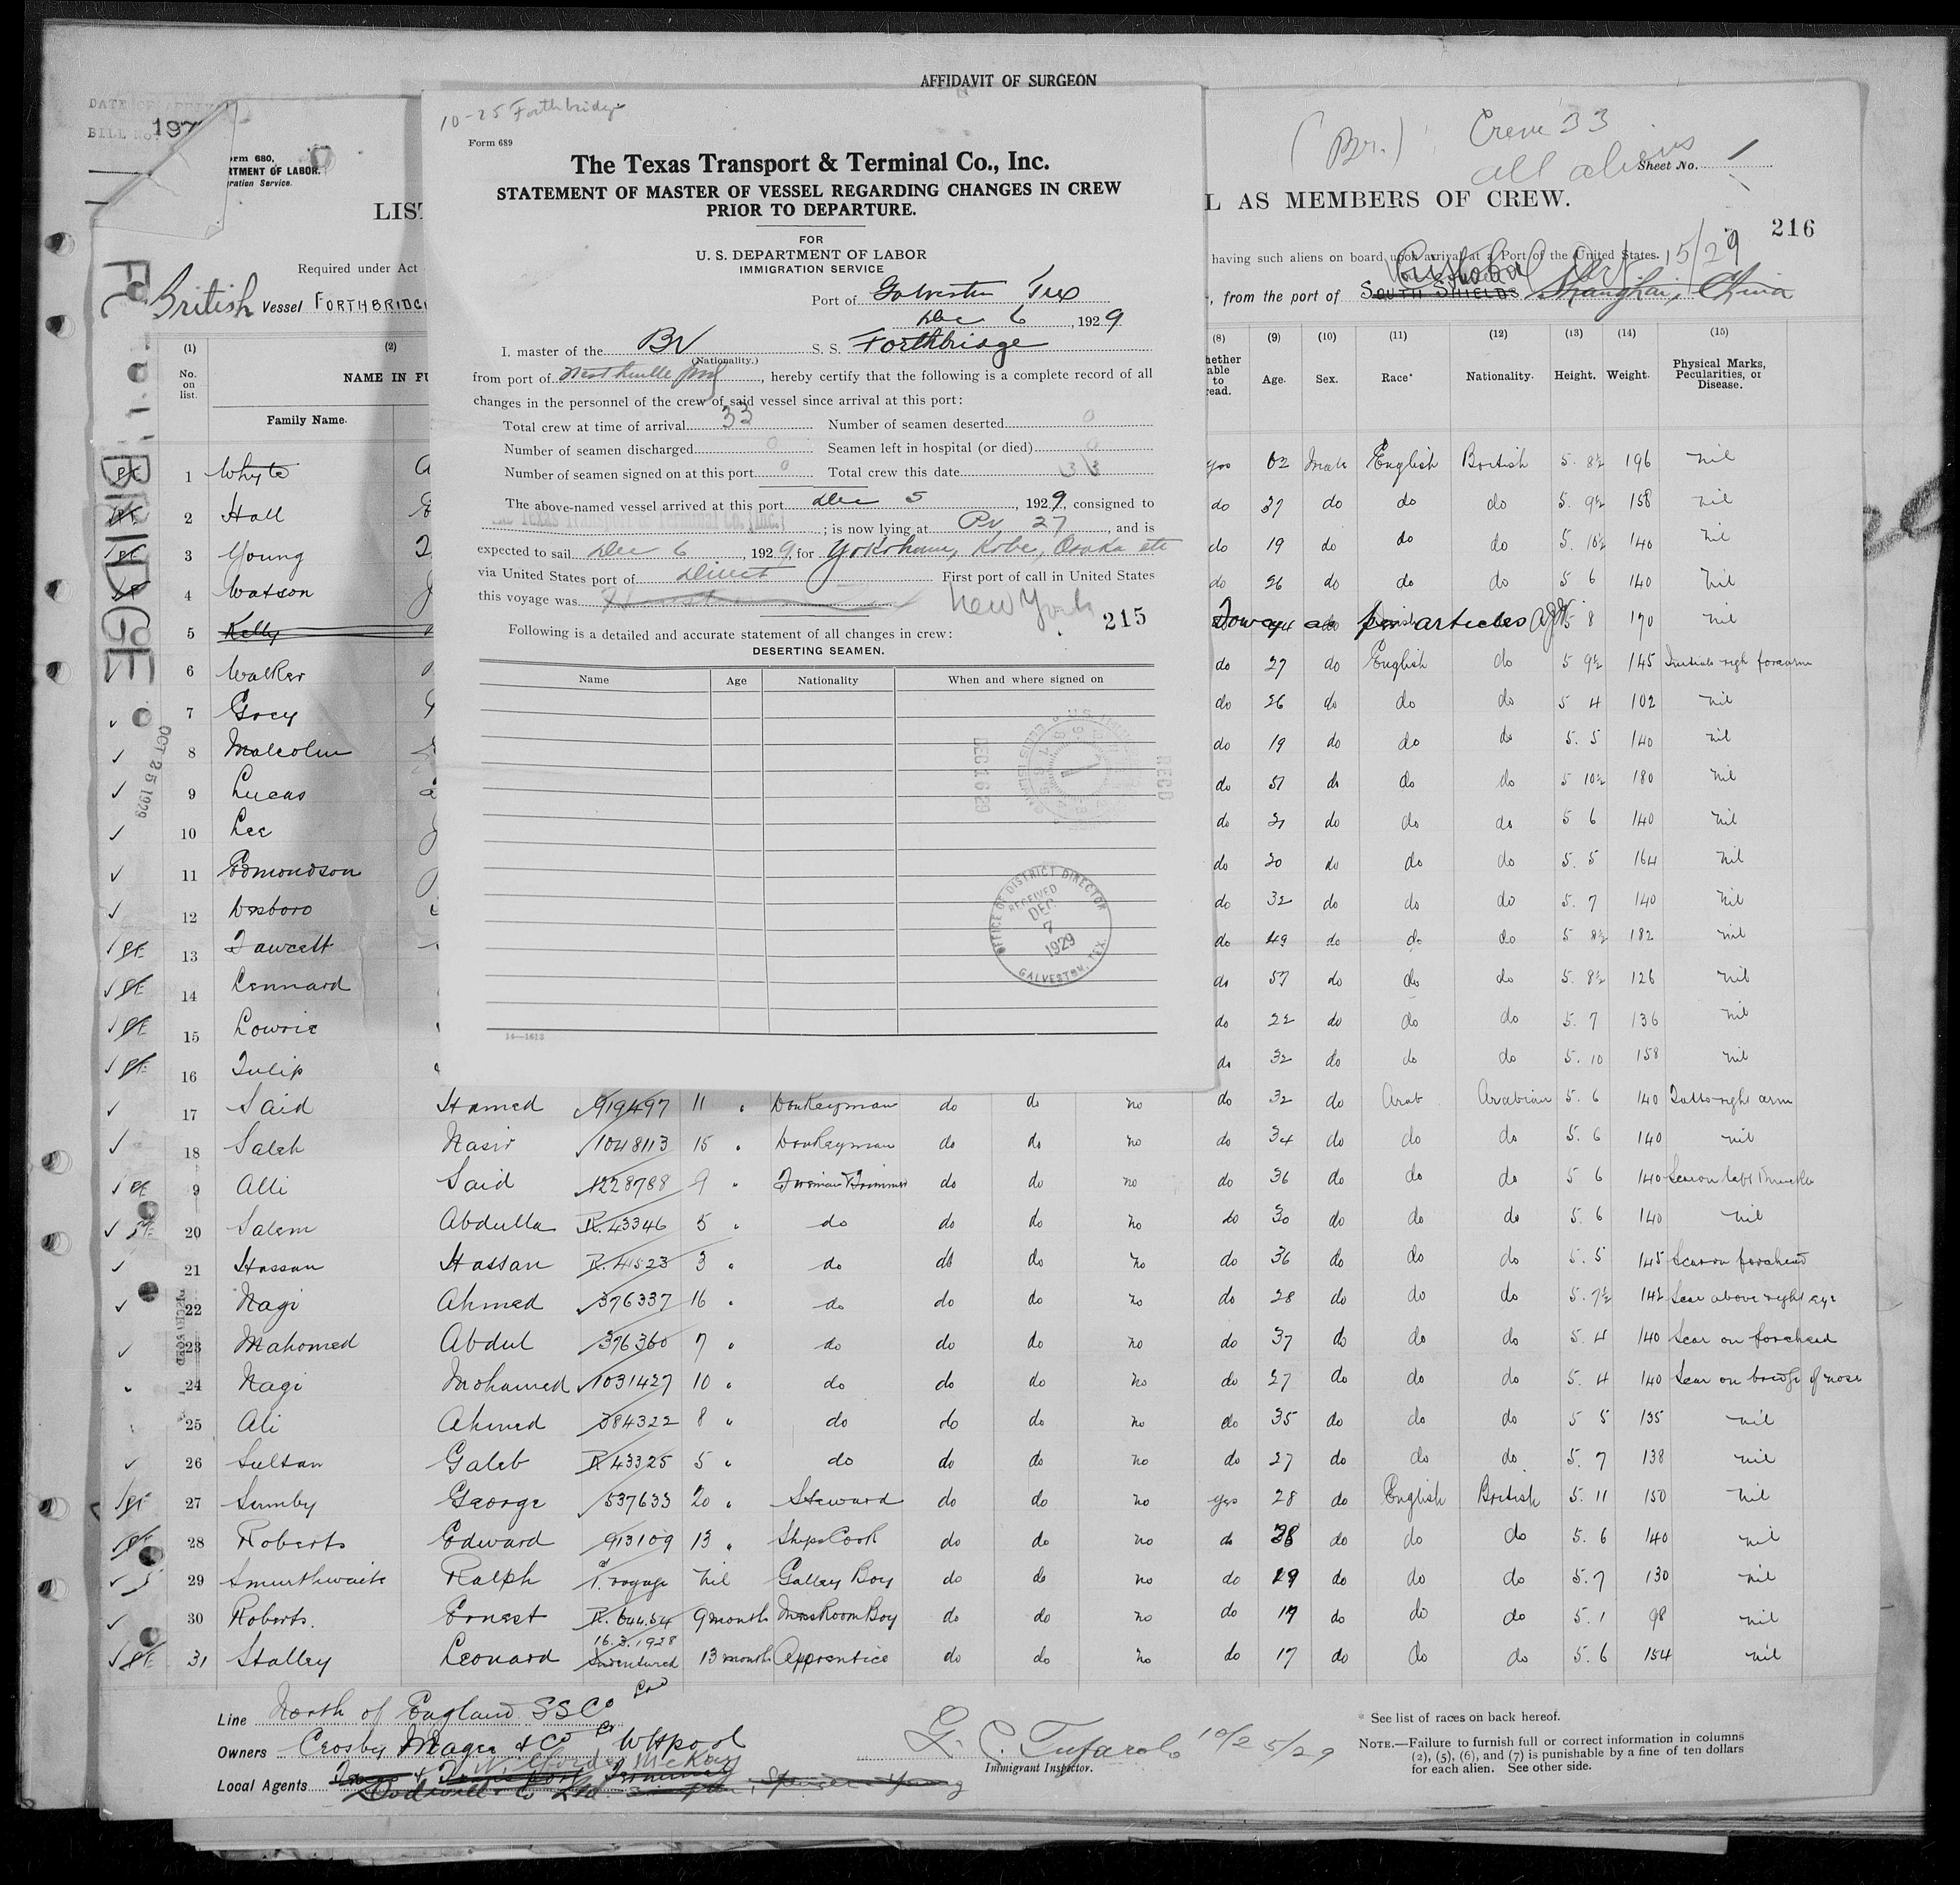 AFFIDAVIT OF SURGEON
DATE OF ARRIVAL
BILL No. 197
Form 680,
RTMENT OF LABOR.
ration Service.
LIST
Required under Act
British Vessel FORTHBRIDGE
FORTHBRIDGE
OCT 25 1929
10-25 Forthbridge
Form 689
The Texas Transport & Terminal Co., Inc.
STATEMENT OF MASTER OF VESSEL REGARDING CHANGES IN CREW
PRIOR TO DEPARTURE.
FOR
U. S. DEPARTMENT OF LABOR
IMMIGRATION SERVICE
Port of Galveston Tex
Dec 6, 1929
I. master of the Br S. S. Forthbridge
(Nationality.)
from port of , hereby certify that the following is a complete record of all
changes in the personnel of the crew of said vessel since arrival at this port:
Total crew at time of arrival 33 Number of seamen deserted 0
Number of seamen discharged 0 Seamen left in hospital (or died) 0
Number of seamen signed on at this port 0 Total crew this date 33
The above-named vessel arrived at this port Dec 5, 1929, consigned to
The Texas Transport & Terminal Co. (Inc.) ; is now lying at Pr 27, and is
expected to sail Dec 6, 1929, for Yokohama, Kobe, Osaka etc
via United States port of Direct First port of call in United States
this voyage was New York 215
Following is a detailed and accurate statement of all changes in crew:
DESERTING SEAMEN.
Name Age Nationality When and where signed on
DEC 16 29
RECD
OFFICE OF DISTRICT DIRECTOR
RECEIVED
DEC
7
1929
GALVESTON, TEX.
14—1613
(Br.) Crew 33
all aliens
Sheet No. 1
L AS MEMBERS OF CREW.
216
having such aliens on board upon arrival at a Port of the United States.
Cristobal Oct 15/29
, from the port of SOUTH SHIELDS Shanghai, China
(1) (2) (8) (9) (10) (11) (12) (13) (14) (15)
No. on list. NAME IN FU hether able to read. Age. Sex. Race* Nationality. Height. Weight. Physical Marks, Pecularities, or Disease.
Family Name.
1 Whyte yes 62 Male English British 5. 8½ 196 nil
2 Hall do 37 do do do 5. 9½ 158 nil
3 Young do 19 do do do 5. 10½ 140 nil
4 Watson do 26 do do do 5 6 140 nil
5 Kelly per articles 5 8 170 nil
6 Walker do 27 do English do 5 9½ 145 Initials righ forearm
7 Grey do 26 do do do 5 4 102 nil
8 Malcolm do 19 do do do 5. 5 140 nil
9 Lucas do 51 do do do 5 10½ 180 nil
10 Lee do 21 do do do 5 6 140 nil
11 Edmondson do 20 do do do 5. 5 164 nil
12 Desboro do 32 do do do 5. 7 140 nil
13 Fawcett do 49 do do do 5 8½ 182 nil
14 Lennard do 57 do do do 5. 8½ 126 nil
15 Lowrie do 22 do do do 5. 7 136 nil
16 Tulip do 32 do do do 5. 10 158 nil
17 Said Hamed 919497 11 " Donkeyman do do no do 32 do Arab Arabian 5. 6 140 Tatto right arm
18 Saleh Nasir 1048113 15 " Donkeyman do do no do 34 do do do 5. 6 140 nil
9 Alli Said 1228788 9 " Fireman & Trimmer do do no do 36 do do do 5 6 140 Scar on left Knuckle
20 Salem Abdulla R. 43346 5 " do do do no do 30 do do do 5. 6 140 nil
21 Hassan Hassan R. 41523 3 " do do do no do 36 do do do 5. 5 145 Scar on forehead
22 Nagi Ahmed 376337 16 " do do do no do 28 do do do 5. 7½ 142 Scar above right eye
23 Mahomed Abdul 376360 7 " do do do no do 37 do do do 5. 4 140 Scar on forehead
24 Nagi Mohamed 1031427 10 " do do do no do 27 do do do 5. 4 140 Scar on bridge of nose
25 Ali Ahmed 384322 8 " do do do no do 35 do do do 5 5 135 nil
26 Sultan Galeb R 43325 5 " do do do no do 27 do do do 5. 7 138 nil
27 Sumby George 537633 20 " Steward do do no yes 28 do English British 5. 11 150 nil
28 Roberts Edward 913109 13 " Ships Cook do do no do 38 do do do 5. 6 140 nil
29 Smurthwaite Ralph 1. voyage nil Galley Boy do do no do 19 do do do 5. 7 130 nil
30 Roberts. Ernest R. 64454 9 months Mess Room Boy do do no do 17 do do do 5. 1 98 nil
31 Stalley Leonard 16.3.1928 Indentured 13 months Apprentice do do no do 17 do do do 5. 6 154 nil
Line North of England SS Co Ltd
Owners Crosby Magee & Co
Local Agents Dodwell & Co Ltd.
G. C. Tufarolo 10/25/29
Immigrant Inspector.
* See list of races on back hereof.
NOTE.—Failure to furnish full or correct information in columns
(2), (5), (6), and (7) is punishable by a fine of ten dollars
for each alien. See other side.